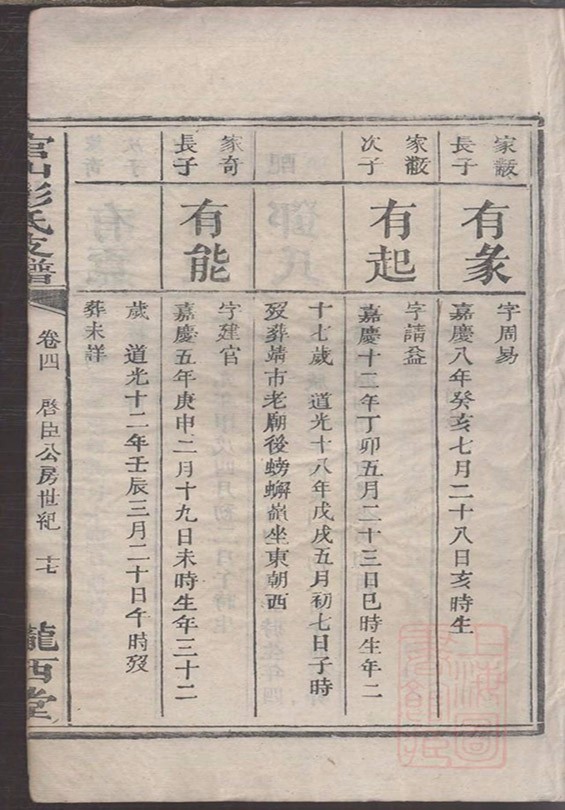 家散
長子
有彖
字周易
嘉慶八年癸亥七月二十八日亥時生
家散
次子
有起
字請益
嘉慶十二年丁卯五月二十三日巳時生年二
十七歲 道光十八年戊戌五月初七日子時
歿葬靖市老廟後螃蠏嶺坐東朝西
家奇
長子
有能
字建官
嘉慶五年庚申二月十九日未時生年三十二
歲 道光十二年壬辰三月二十日午時歿
葬未詳
官山彭氏支譜
卷四 啓臣公房世紀 十七
隴西堂
上海圖書館藏